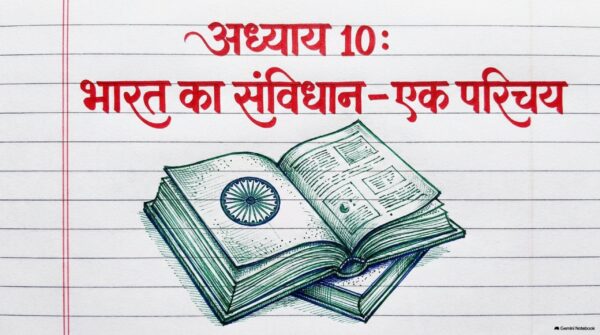 अध्याय 10:
भारत का संविधान - एक परिचय
Gemini Notebook